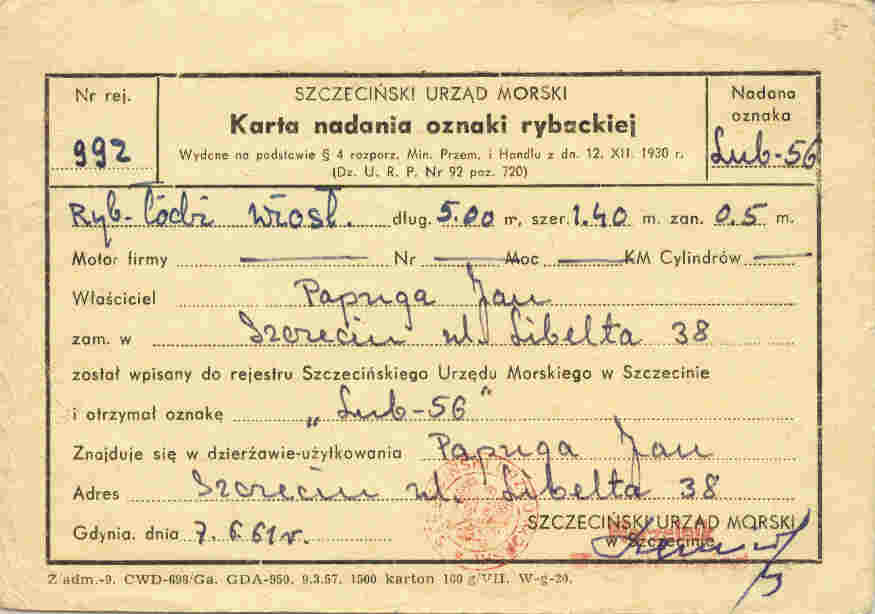 Nr rej.
992
SZCZECIŃSKI URZĄD MORSKI
Karta nadania oznaki rybackiej
Wydane na podstawie § 4 rozporz. Min. Przem. i Handlu z dn. 12. XII. 1930 r.
(Dz. U. R. P. Nr 92 poz. 720)
Nadana
oznaka
Lub-56
Ryb-łódź wiosł. dług. 5.00 m, szer. 1.40 m. zan. 0.5 m.
Motor firmy — Nr — Moc — KM Cylindrów —
Właściciel Papuga Jan
zam. w Szczecin ul. Libelta 38
został wpisany do rejestru Szczecińskiego Urzędu Morskiego w Szczecinie
i otrzymał oznakę „Lub-56"
Znajduje się w dzierżawie-użytkowania Papuga Jan
Adres Szczecin ul. Libelta 38
Gdynia, dnia 7.6.61 r.
SZCZECIŃSKI URZĄD MORSKI
w Szczecinie
Z adm.-9. CWD-698/Ga. GDA-950. 9.3.57. 1500 karton 160 g/VII. W-g-20.